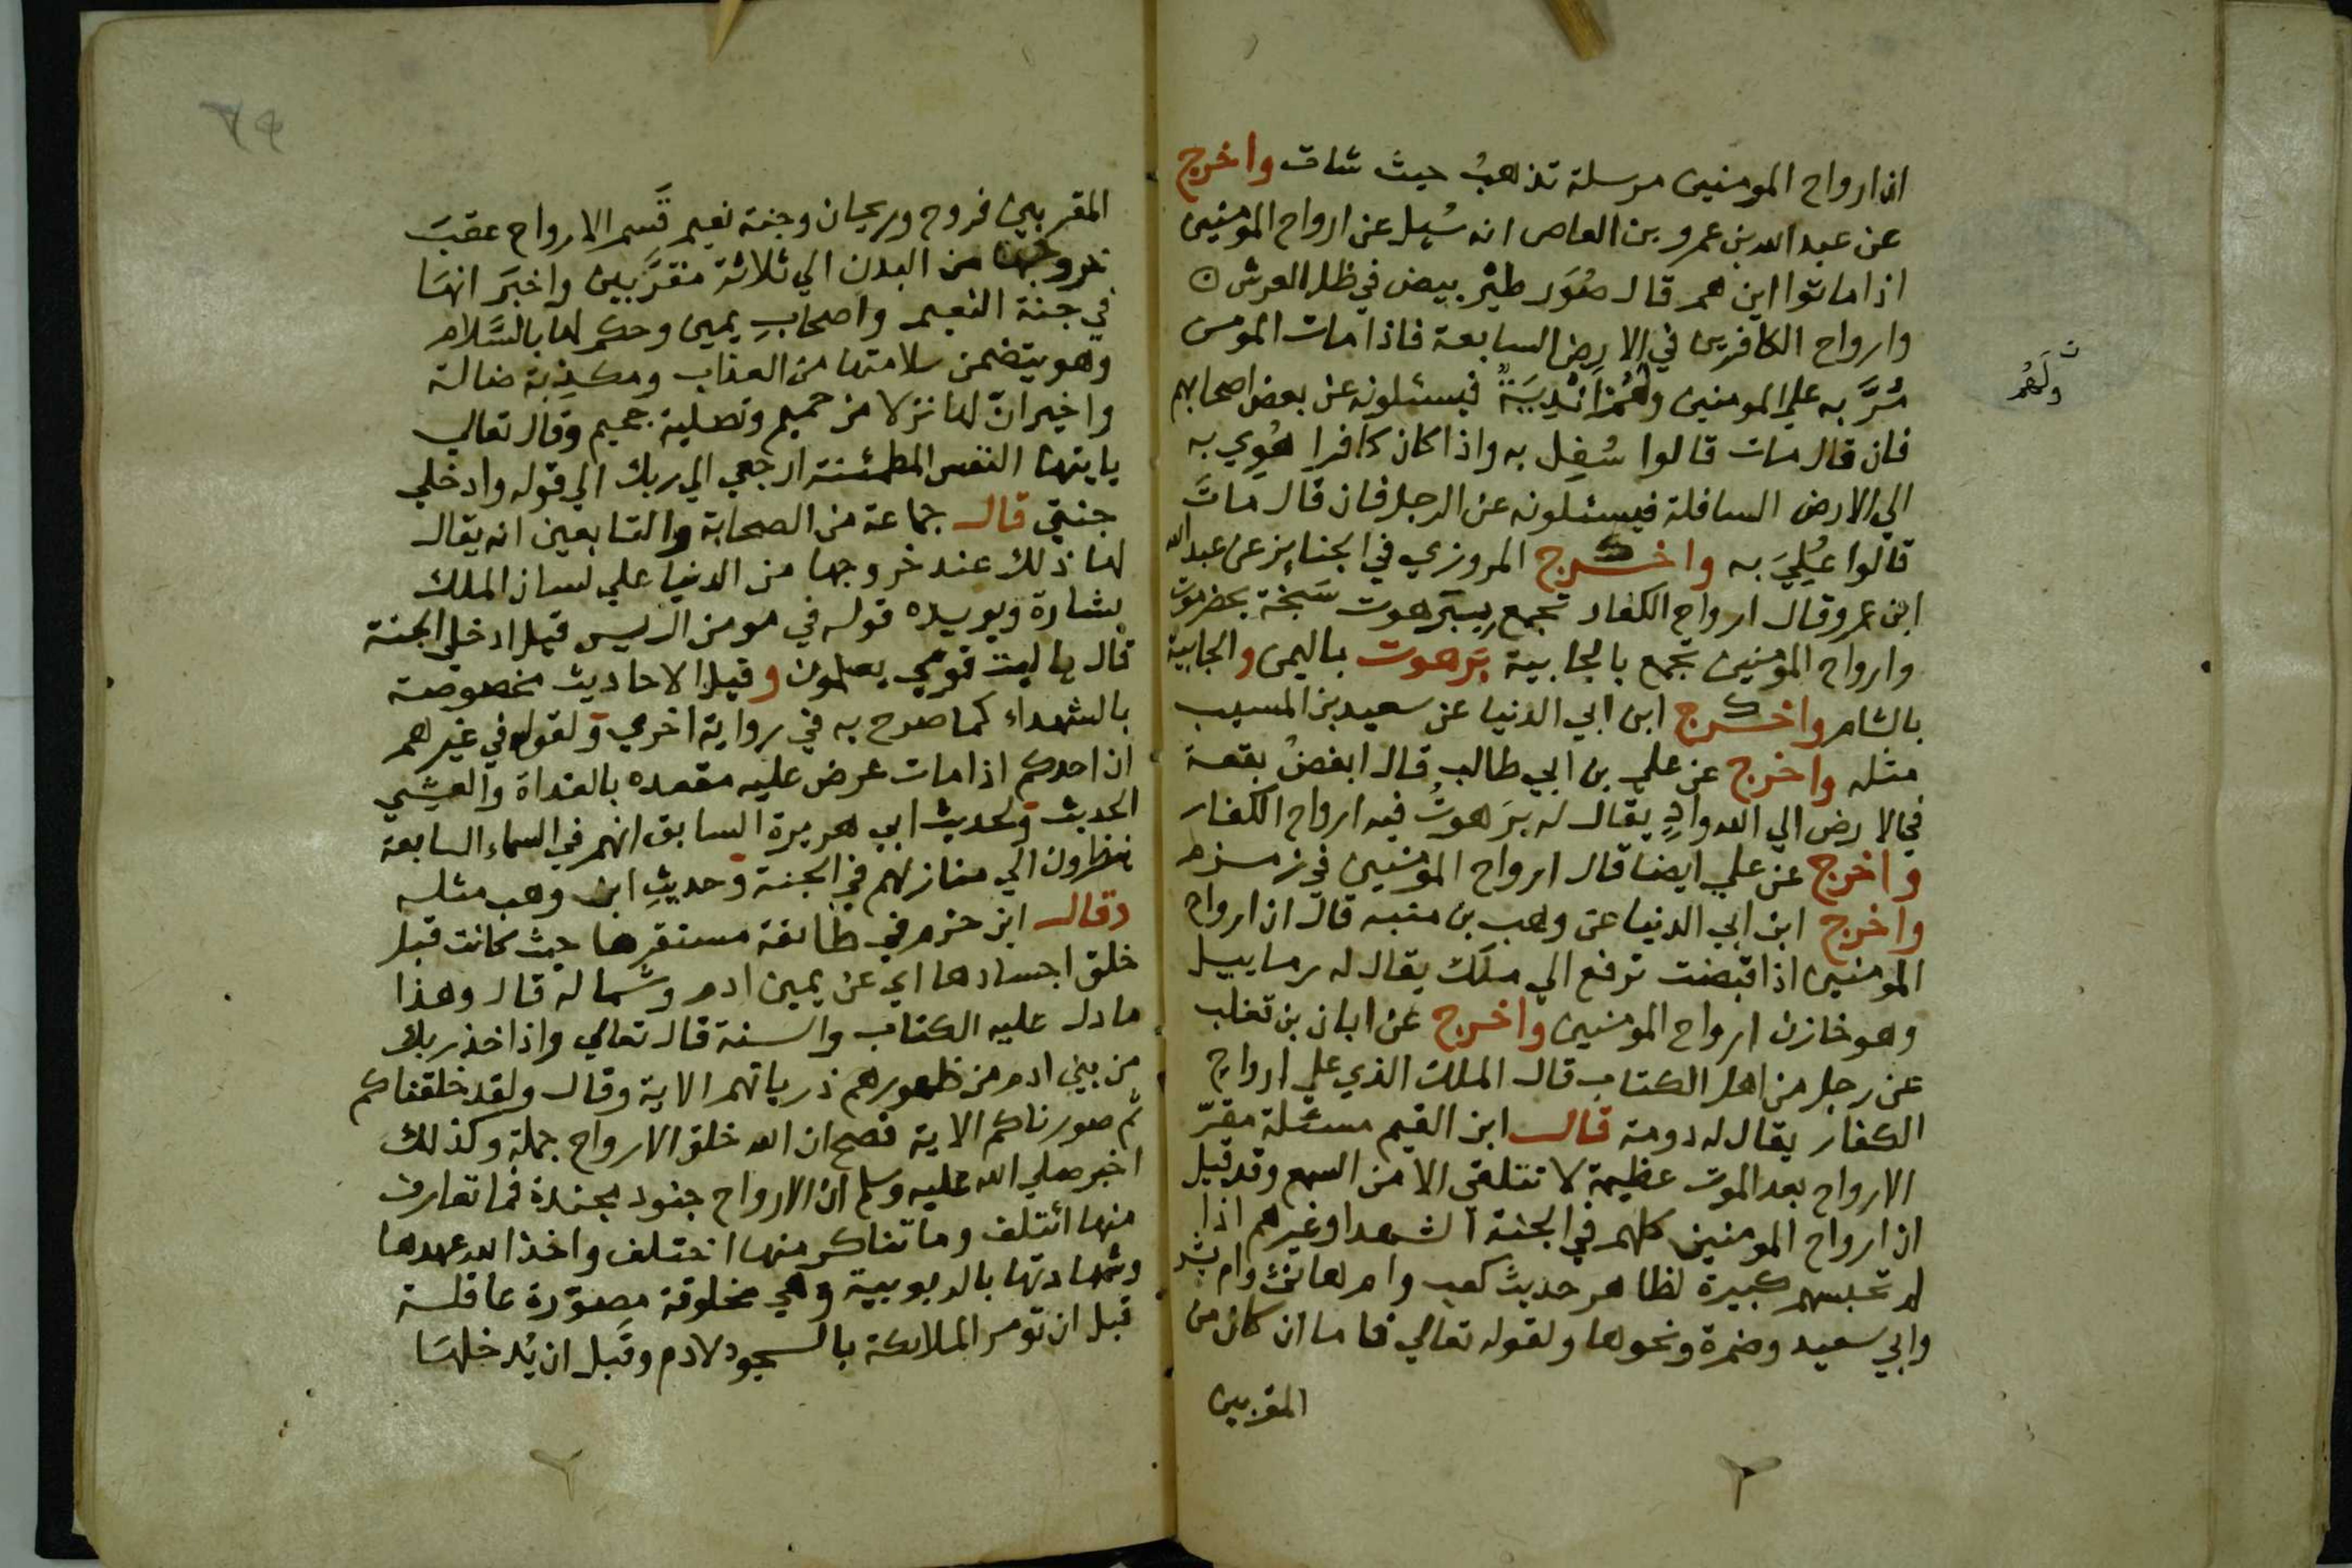 ان ارواح المومنين مرسلة تذهبُ حيث شات واخرج
عن عبد الله بن عمرو بن العاص انه سُيل عن ارواح المومنين
اذا ماتوا اين هم قال صُوَر طيْر بيض في ظل العرش
وارواح الكافرين في الارض السابعة فاذا مات المومن
مُرَّ به علي المومنين ولهُمْ اَنْدِيَةٌ فيسئلونه عن بعض اصحابهم
ولَهُم
فان قال مات قالوا سُفِل به واذا كان كافرا هُوِي به
الي الارض السافلة فيسئلونه عن الرجل فان قال ماتَ
قالوا عُلِيَ به واخرج المروزي في الجنايز عن عبد الله
ابن عمرو قال ارواح الكفار تجمع ببَرهوت سَبخة بحضرموت
وارواح المومنين تجمع بالجابية بَرهوت باليمن والجابية
بالشام واخرج ابن ابي الدنيا عن سعيد بن المسيب
مثله واخرج عن علي بن ابي طالب قال ابغضُ بقعة
في الارض الي الله وادٍ يقال له بَرَهوتُ فيه ارواح الكفار
واخرج عن علي ايضا قال ارواح المومنين في زمزم
واخرج ابن ابي الدنيا عن وهب بن منبه قال ان ارواح
المومنين اذا قبضت ترفع الي ملَك يقال له رماييل
وهو خازن ارواح المومنين واخرج عن ابان بن تغلب
عن رجل من اهل الكتاب قال الملك الذي علي ارواح
الكفار يقال له دومة قال ابن القيم مسئلة مقرّ
الارواح بعد الموت عظيمة لا تتلقي الا من السمع وقد قيل
ان ارواح المومنين كلهم في الجنة الشهدا وغيرهم اذا
لم تحبسهم كبيرة لظاهر حديث كعب وام هانئ وام بشر
وابي سعيد وضمرة ونحوها ولقوله تعالي فاما ان كان من
المقربين
٦٩
المقربين فروح وريحان وجنة نعيم قَسم الارواح عقبَ
خروجها من البدن الي ثلاثة مقرَّبين واخبَر انها
في جنة النعيم واصحابِ يمين وحكم لها بالسَّلام
وهو يتضمن سلامتها من العذاب ومكذِبة ضالة
واخبر انّ لها نزلا من حميم وتصلية جحيم وقال تعالي
يايتها النفس المطمئنة ارجعي الي ربك الي قوله وادخلي
جنتي قال جماعة من الصحابة والتابعين انه يقال
لها ذلك عند خروجها من الدنيا علي لسان الملك
بشارة ويويده قوله في مومن ال يس قيل ادخل الجنة
قال ياليت قومي يعلمون وقيل الاحاديث مخصوصة
بالشهداء كما صرح به في رواية اخري ولقوله في غيرهم
ان احدكم اذا مات عرض عليه مقعده بالغداة والعشي
الحديث ولحديث ابي هريرة السابق انهم في السماء السابعة
ينظرون الي منازلهم في الجنة وحديثِ ابن وهب مثله
وقال ابن حزم في طائفة مستقرها حيث كانت قبل
خلق اجسادها اي عن يمين ادم وشماله قال وهذا
ما دل عليه الكتاب والسنة قال تعالي واذ اخذ ربك
من بني ادم من ظهورهم ذرياتهم الاية وقال ولقد خلقناكم
ثم صورناكم الاية فصح ان الله خلق الارواح جملة وكذلك
اخبر صلي الله عليه وسلم ان الارواح جنود مجندة فما تعارف
منها ائتلف وما تناكر منها اختلف واخذ الله عهدها
وشهادتها بالربوبية وهي مخلوقة مصوّرة عاقلة
قبل ان تومر الملائكة بالسجود لادم وقَبل ان يُدخلها